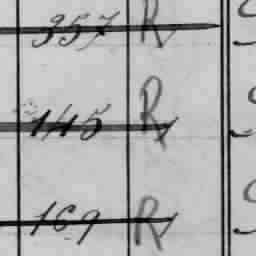 357 R
145 R
169 R